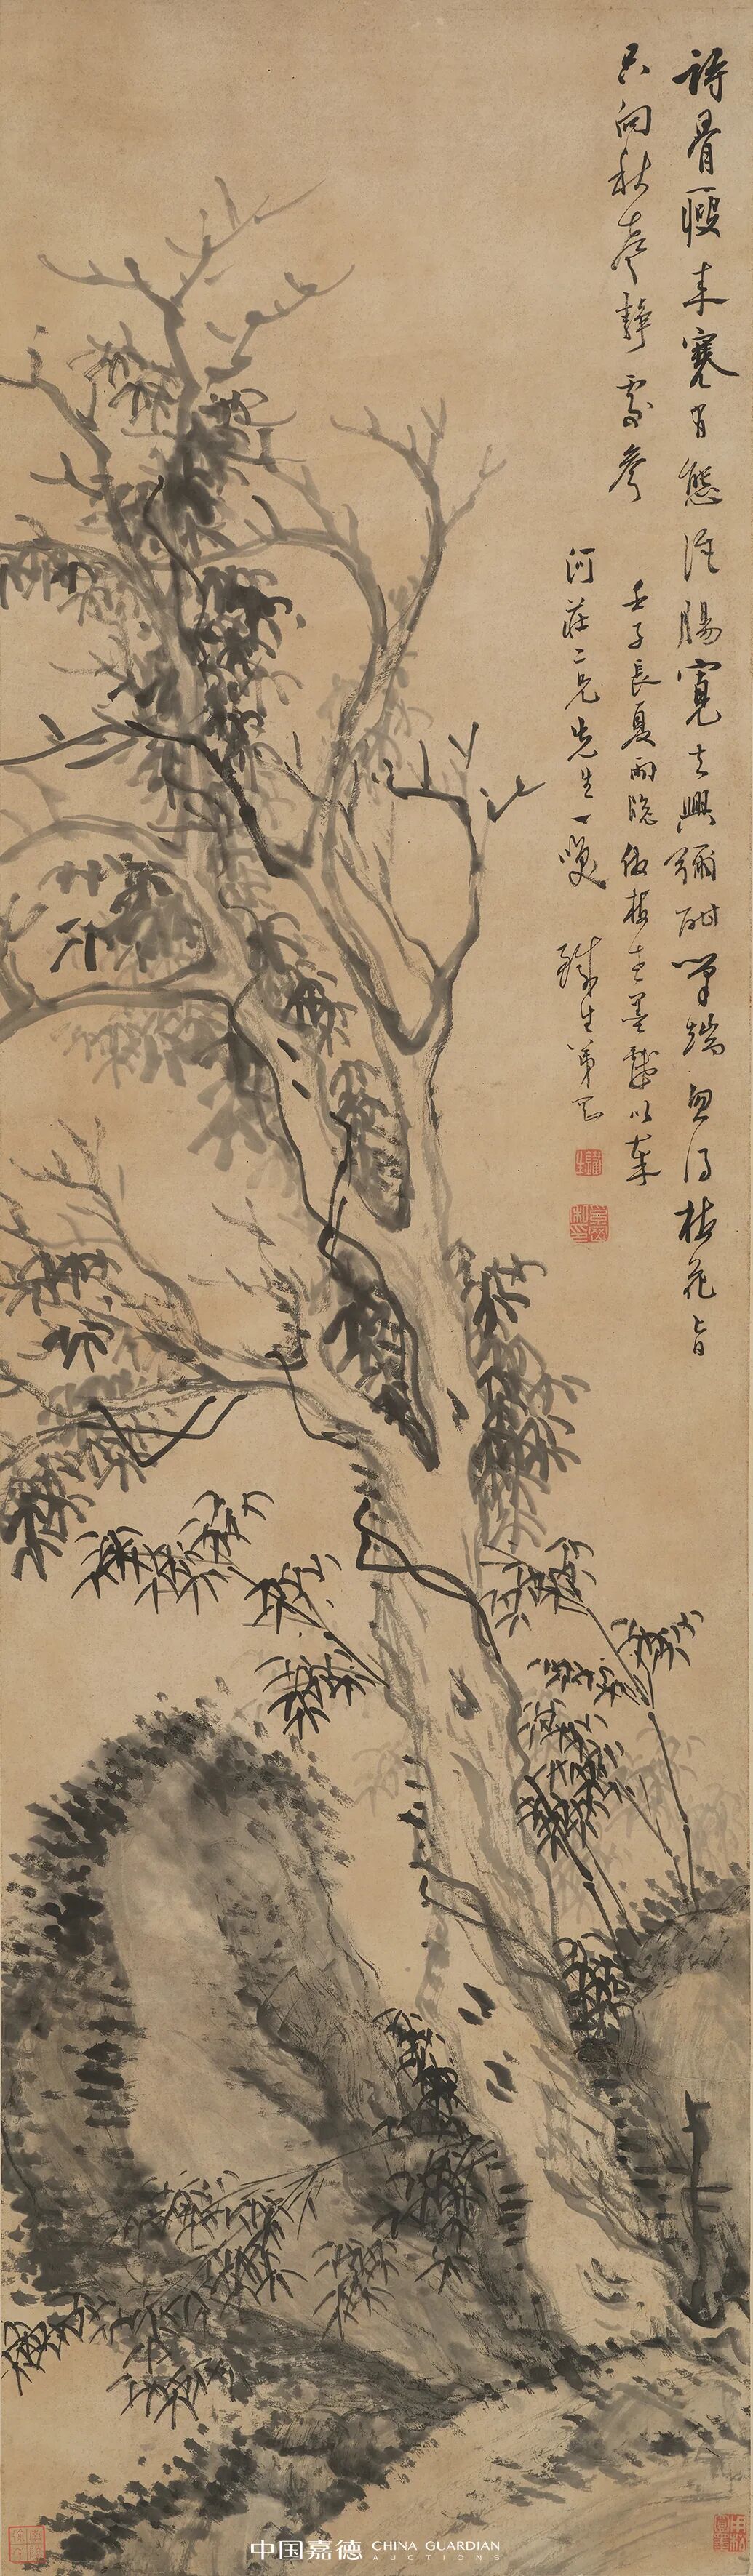 詩骨瘦來寒有態酒腸寬去興彌酣筆端忽得梅花旨
只向秋巖靜處參
壬子長夏雨牕仿梅道人墨戲以奉
河莊二兄先生一噱 鐵生弟岡
中国嘉德 CHINA GUARDIAN
AUCTIONS